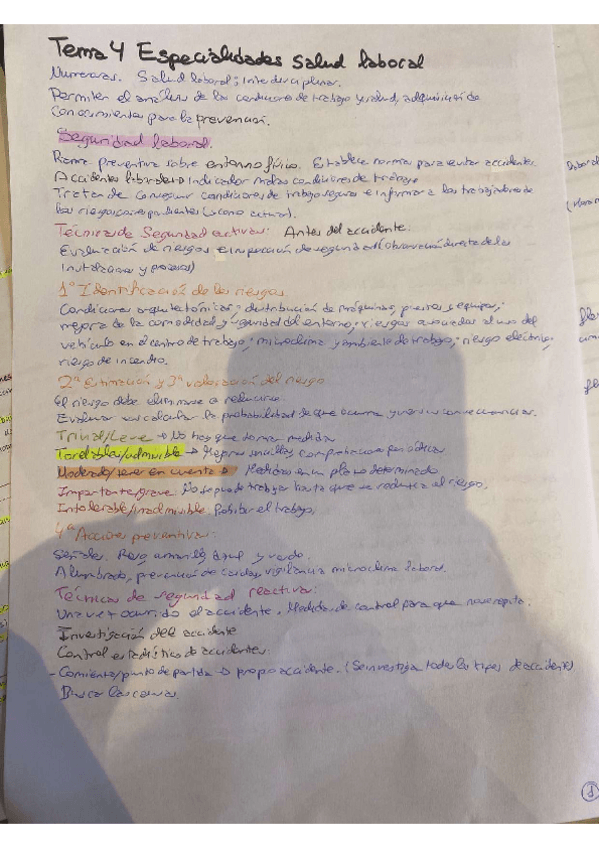 Tema 4 Especialidades salud laboral
Numerosas. Salud laboral; interdisciplinar.
Permiten el análisis de las condiciones de trabajo y salud, adquisición de
conocimientos para la prevención.
Seguridad laboral.
Rama preventiva sobre entorno físico. Establece normas para evitar accidentes.
Accidentes laborales → Indicador malas condiciones de trabajo
Trata de conseguir condiciones de trabajo seguras e informar a los trabajadores de
los riesgos correspondientes (y como actuar).
Técnicas de Seguridad activas: Antes del accidente.
Evaluación de riesgos e inspección de seguridad (observación directa de las
instalaciones y procesos)
1º Identificación de los riesgos.
Condiciones arquitectónicas; distribución de máquinas, puestos y equipos;
mejora de la comodidad y seguridad del entorno; riesgos asociados al uso del
vehículo en el centro de trabajo; microclima y ambiente de trabajo; riesgo eléctrico;
riesgo de incendio.
2ª estimación y 3ª valoración del riesgo
El riesgo debe eliminarse o reducirse.
Evaluar es calcular la probabilidad de que ocurra y sus consecuencias.
Trivial/Leve → No hay que tomar medidas
Tolerables/admisible → Mejoras sencillas, comprobaciones periódicas
Moderado/tener en cuenta → Medidas en un plazo determinado
Importante/grave. No se puede trabajar hasta que se reduzca el riesgo.
Intolerable/inadmisible. Prohibir el trabajo.
4ª Acciones preventivas:
Señales. Rojo, amarillo, azul y verde.
Alumbrado, prevención de caídas, vigilancia microclima laboral.
Técnicas de seguridad reactivas:
Una vez ocurrido el accidente. Medidas de control para que no se repita.
Investigación del accidente
Control estadístico de accidentes:
- Comiento/punto de partida → propio accidente. (Se investigan todos los tipos de accidentes)
Buscar las causas
1